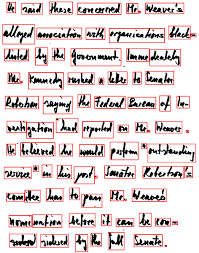 He said these concerned Mr. Weaver's
alleged association with organisations black-
listed by the Government. Immediately
Mr. Kennedy rushed a letter to Senator
Robertson saying the Federal Bureau of In-
vestigation had reported on Mr. Weaver.
He believed he would perform "outstanding
service" in his post. Senator Robertson's
committee has to pass Mr. Weaver's
nomination before it can be con-
sidered by the full Senate.